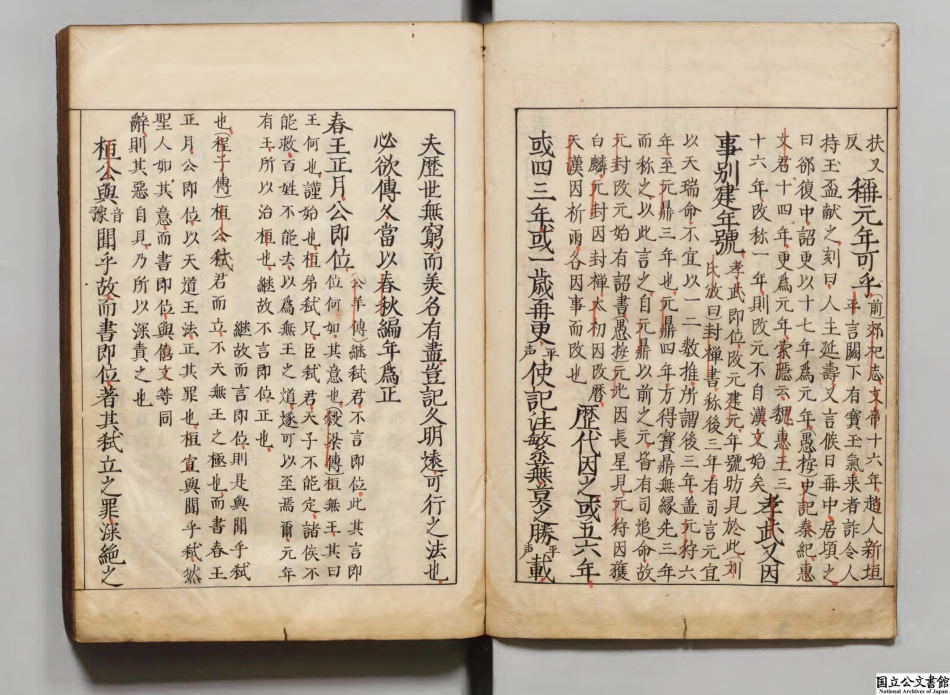 扶又
反 稱元年可乎 前郊祀志文帝十六年趙人新垣
平言闕下有寶玉氣來者詐令人
持玉盃獻之刻曰人主延壽又言俟日再中居頃之
曰卻復中詔更以十七年爲元年愚按史記秦紀惠
文君十四年更爲元年索隱云魏惠王三
十六年改稱一年則改元不自漢文始矣 孝武又因
事別建年號 孝武即位改元建元年號昉見於此刘
氏攽曰封禪書称後三年有司言元宜
以天瑞命不宜以一二数推所謂後三年盖元狩六
年至元鼎三年也元鼎四年方得寳鼎無縁先三年
而称之以此言之自元鼎以前之元皆有司追命故
元封改元始有詔書愚按元光因長星見元狩因獲
白麟元封因封禪太初因改曆
天漢因祈雨各因事而改也 歴代因之或五六年
或四三年或一歳再更平声使記注繁蕪莫之勝平声載
夫歴世無窮而美名有盡豈記久明遠可行之法也
必欲傳久當以春秋編年爲正
春王正月公即位 公羊傳継弑君不言即位此其言即
位何如其意也穀梁傳桓無王其曰
王何也謹始也桓弟弑兄臣弑君天子不能定諸侯不
能救百姓不能去以爲無王之道遂可以至焉爾元年
有王所以治桓也継故不言即位正也
継故而言即位則是與聞乎弑
也程子傳桓公弑君而立不天無王之極也而書春王
正月公即位以天道王法正其罪也桓宣與聞乎弑然
聖人如其意而書即位與僖文等同
辭則其惡自見乃所以深責之也
桓公與音豫聞乎故而書即位著其弑立之罪深絶之
国立公文書館
National Archives of Japan